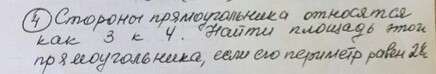 ④ Стороны прямоугольника относятся
как 3 к 4. Найти площадь этого
прямоугольника, если его периметр равен 28